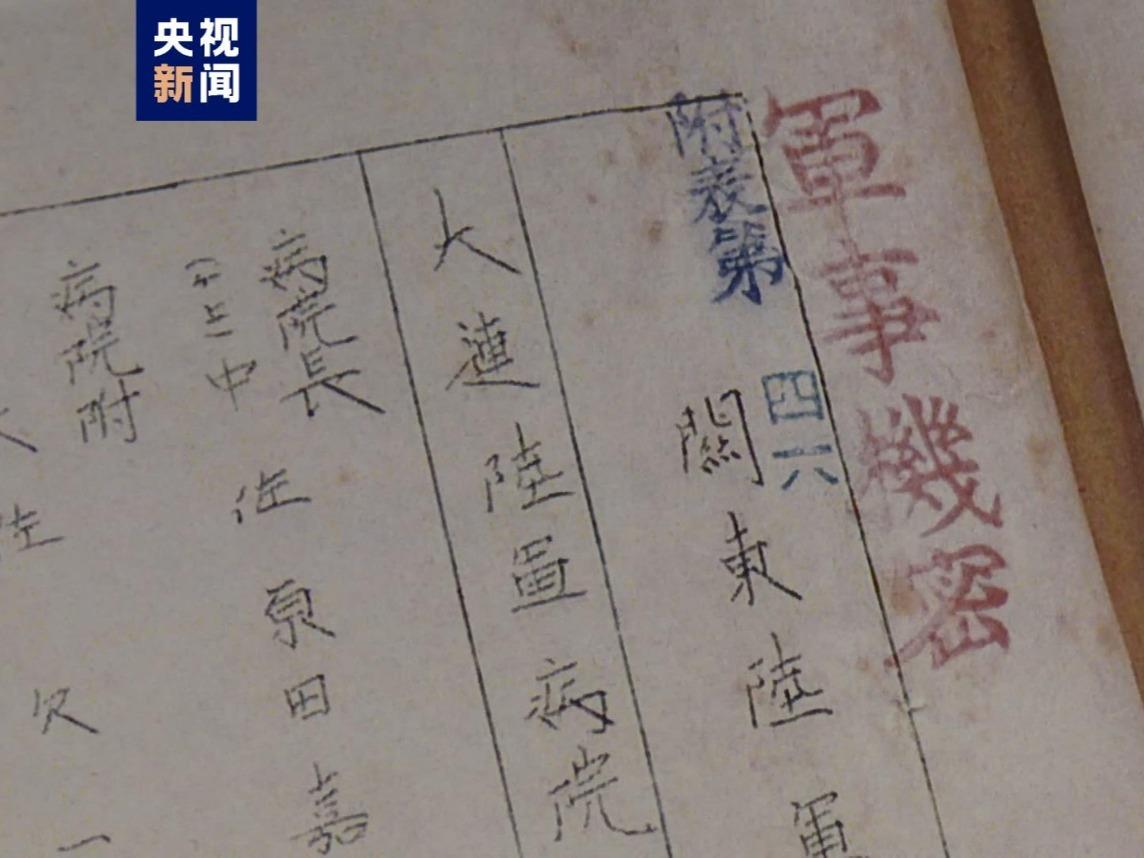 央视
新闻
軍事機密
附表第
四六
關東陸軍
大連陸軍病院
病院長
中佐 原田嘉
病院附
欠一